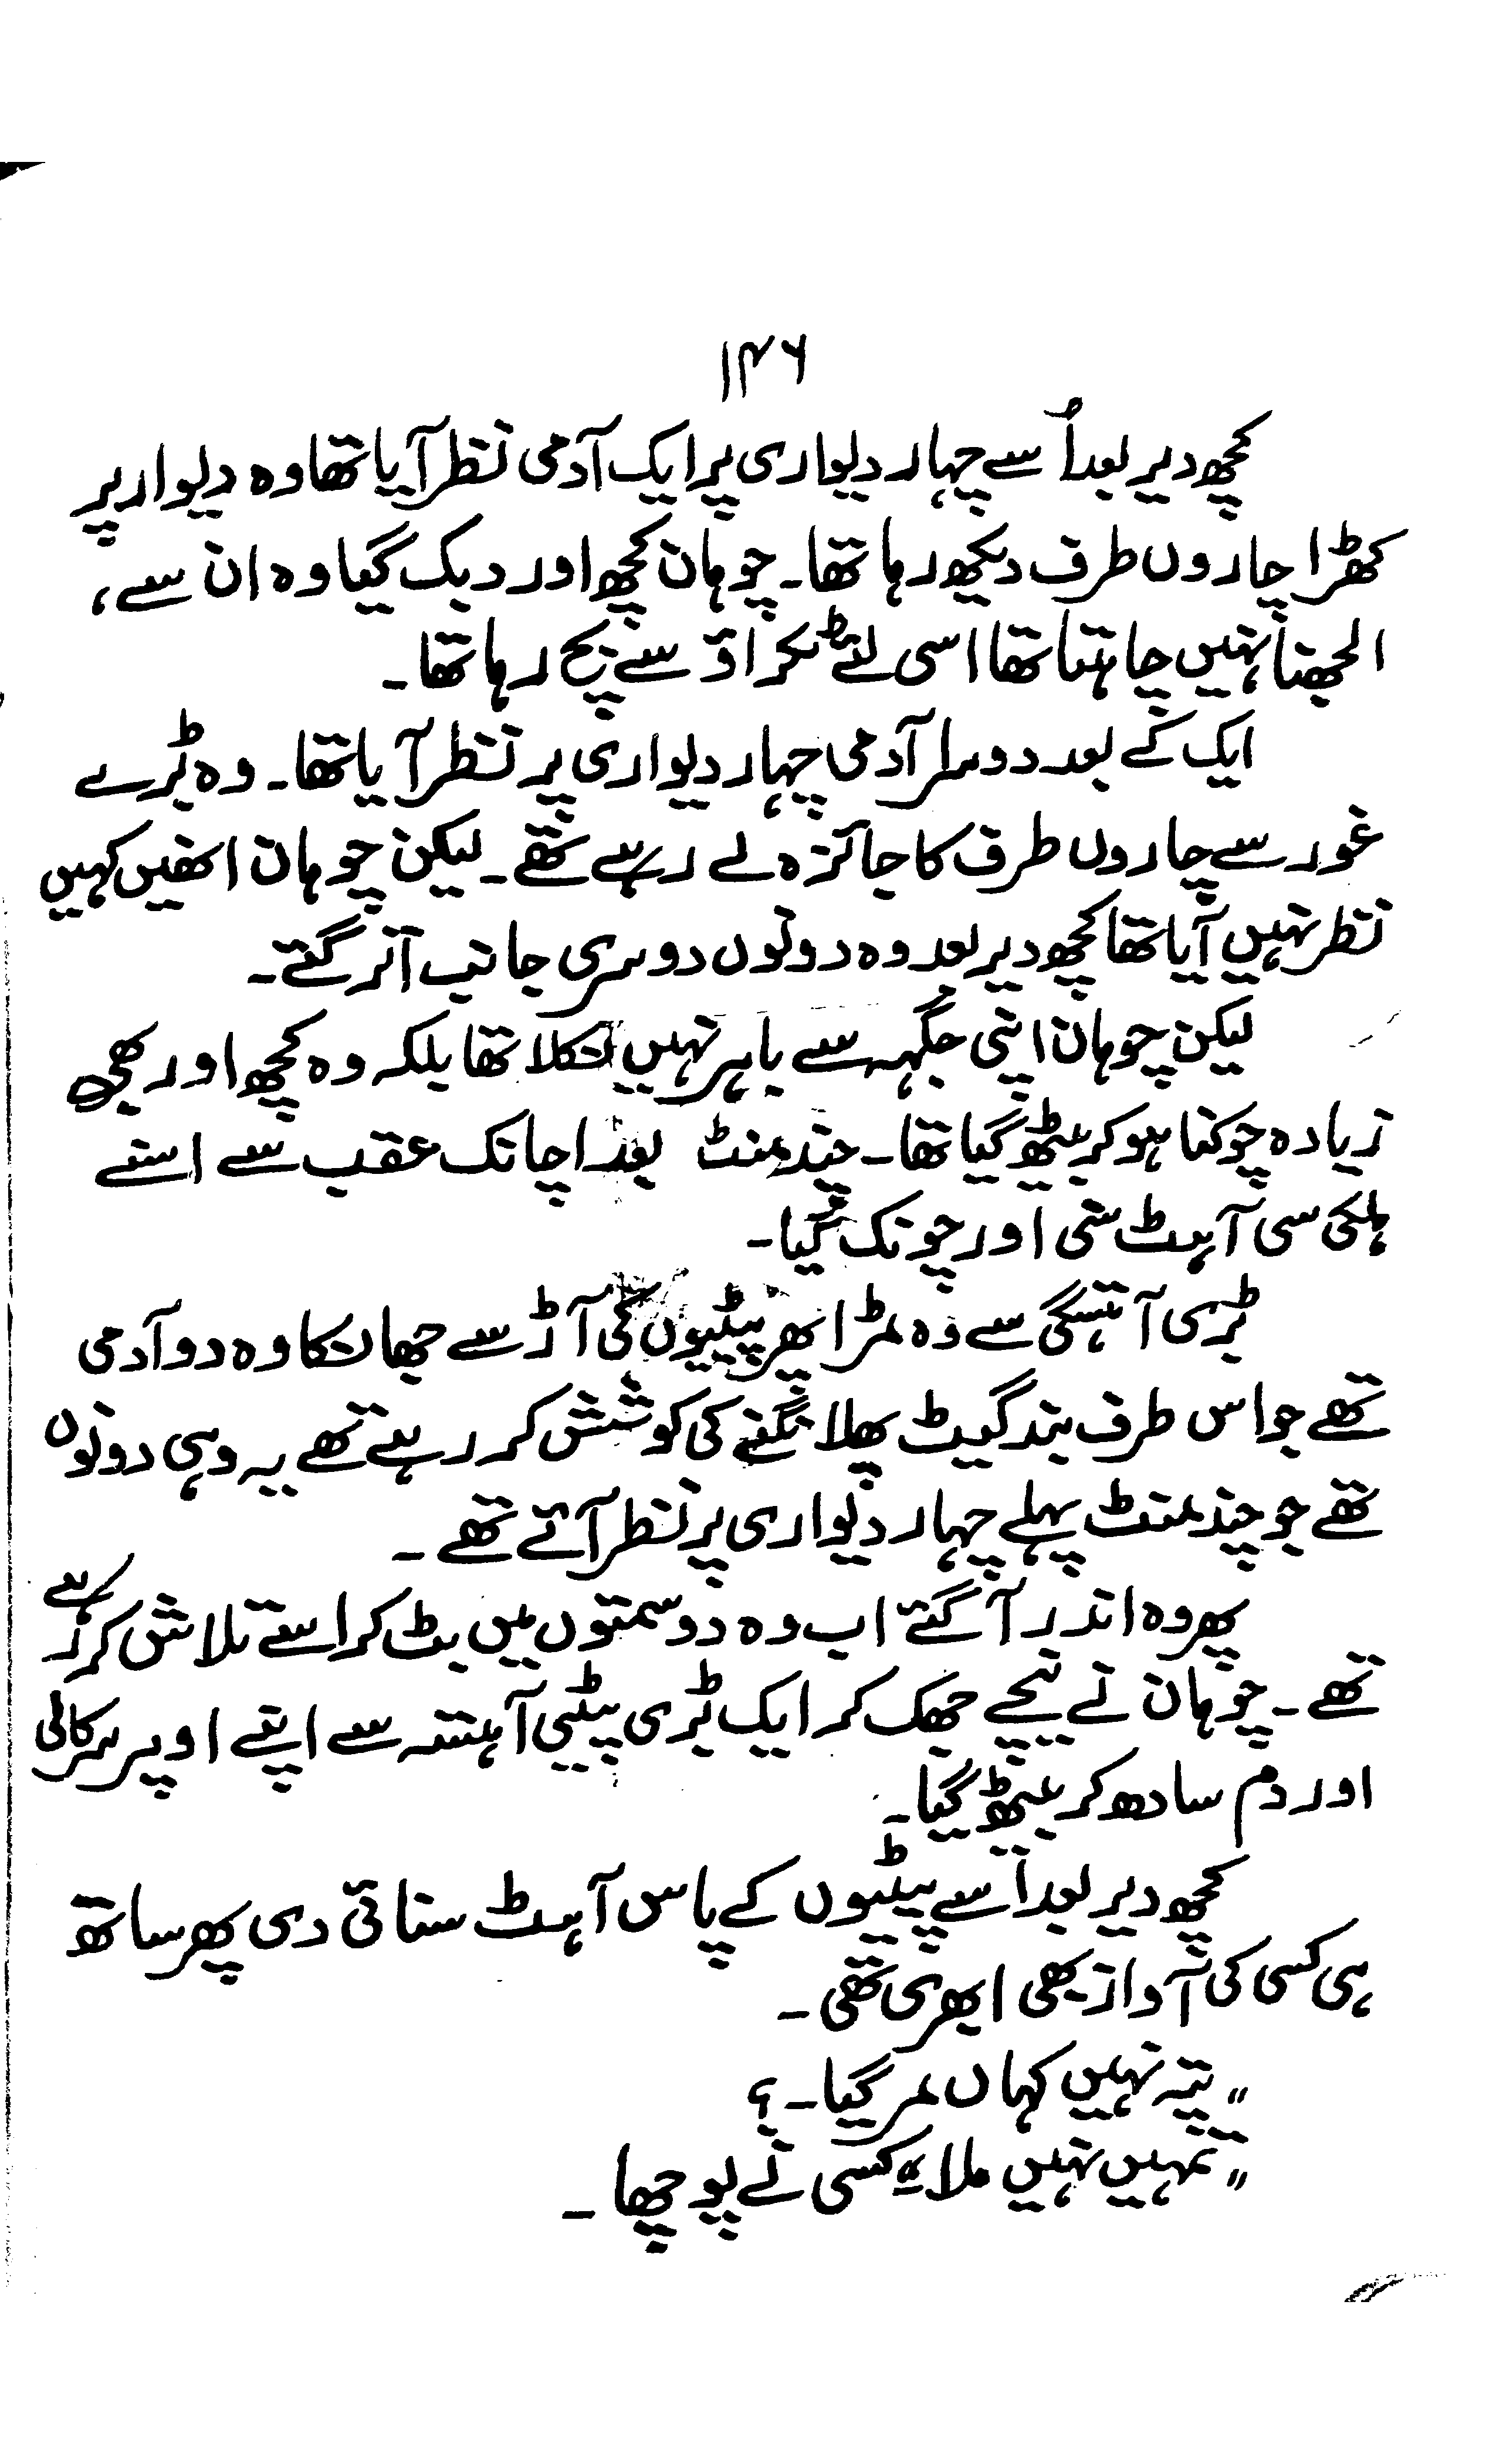 ۱۴۶
کچھ دیر بعد اُسے چہار دیواری پر ایک آدمی نظر آیا تھا وہ دیوار پر
کھڑا چاروں طرف دیکھ رہا تھا۔ چوہان کچھ اور دبک گیا وہ ان سے،
الجھنا نہیں چاہتا تھا اسی لئے ٹکراؤ سے بچ رہا تھا۔
ایک کے بعد دوسرا آدمی چہار دیواری پر نظر آیا تھا۔ وہ بڑے
غور سے چاروں طرف کا جائزہ لے رہے تھے۔ لیکن چوہان انھیں کہیں
نظر نہیں آیا تھا کچھ دیر بعد وہ دونوں دوسری جانب اتر گئے۔
لیکن چوہان اپنی جگہہ سے باہر نہیں نکلا تھا بلکہ وہ کچھ اور بھی
زیادہ چوکنا ہو کر بیٹھ گیا تھا۔ چند منٹ بعد اچانک عقب سے اسنے
ہلکی سی آہٹ سنی اور چونک گیا۔
بڑی آہتسگی سے وہ مڑا پھر پیٹیوں کی آڑ سے جھانکا وہ دو آدمی
تھے جو اس طرف بند گیٹ پھلانگنے کی کوشش کر رہے تھے یہ وہی دونوں
تھے جو چند منٹ پہلے چہار دیواری پر نظر آئے تھے۔
پھر وہ اندر آ گئے اب وہ دو سمتوں میں بٹ کر اسے تلاش کر رہے
تھے۔ چوہان نے نیچے جھک کر ایک بڑی پیٹی آہستہ سے اپنے اوپر سرکالی
اور دم سادھ کر بیٹھ گیا۔
کچھ دیر بعد اسے پیٹیوں کے پاس آہٹ سنائی دی پھر ساتھ
ہی کسی کی آواز بھی ابھری تھی۔
"پتہ نہیں کہاں مر گیا۔؟
"تمہیں نہیں ملا" کسی نے پوچھا۔